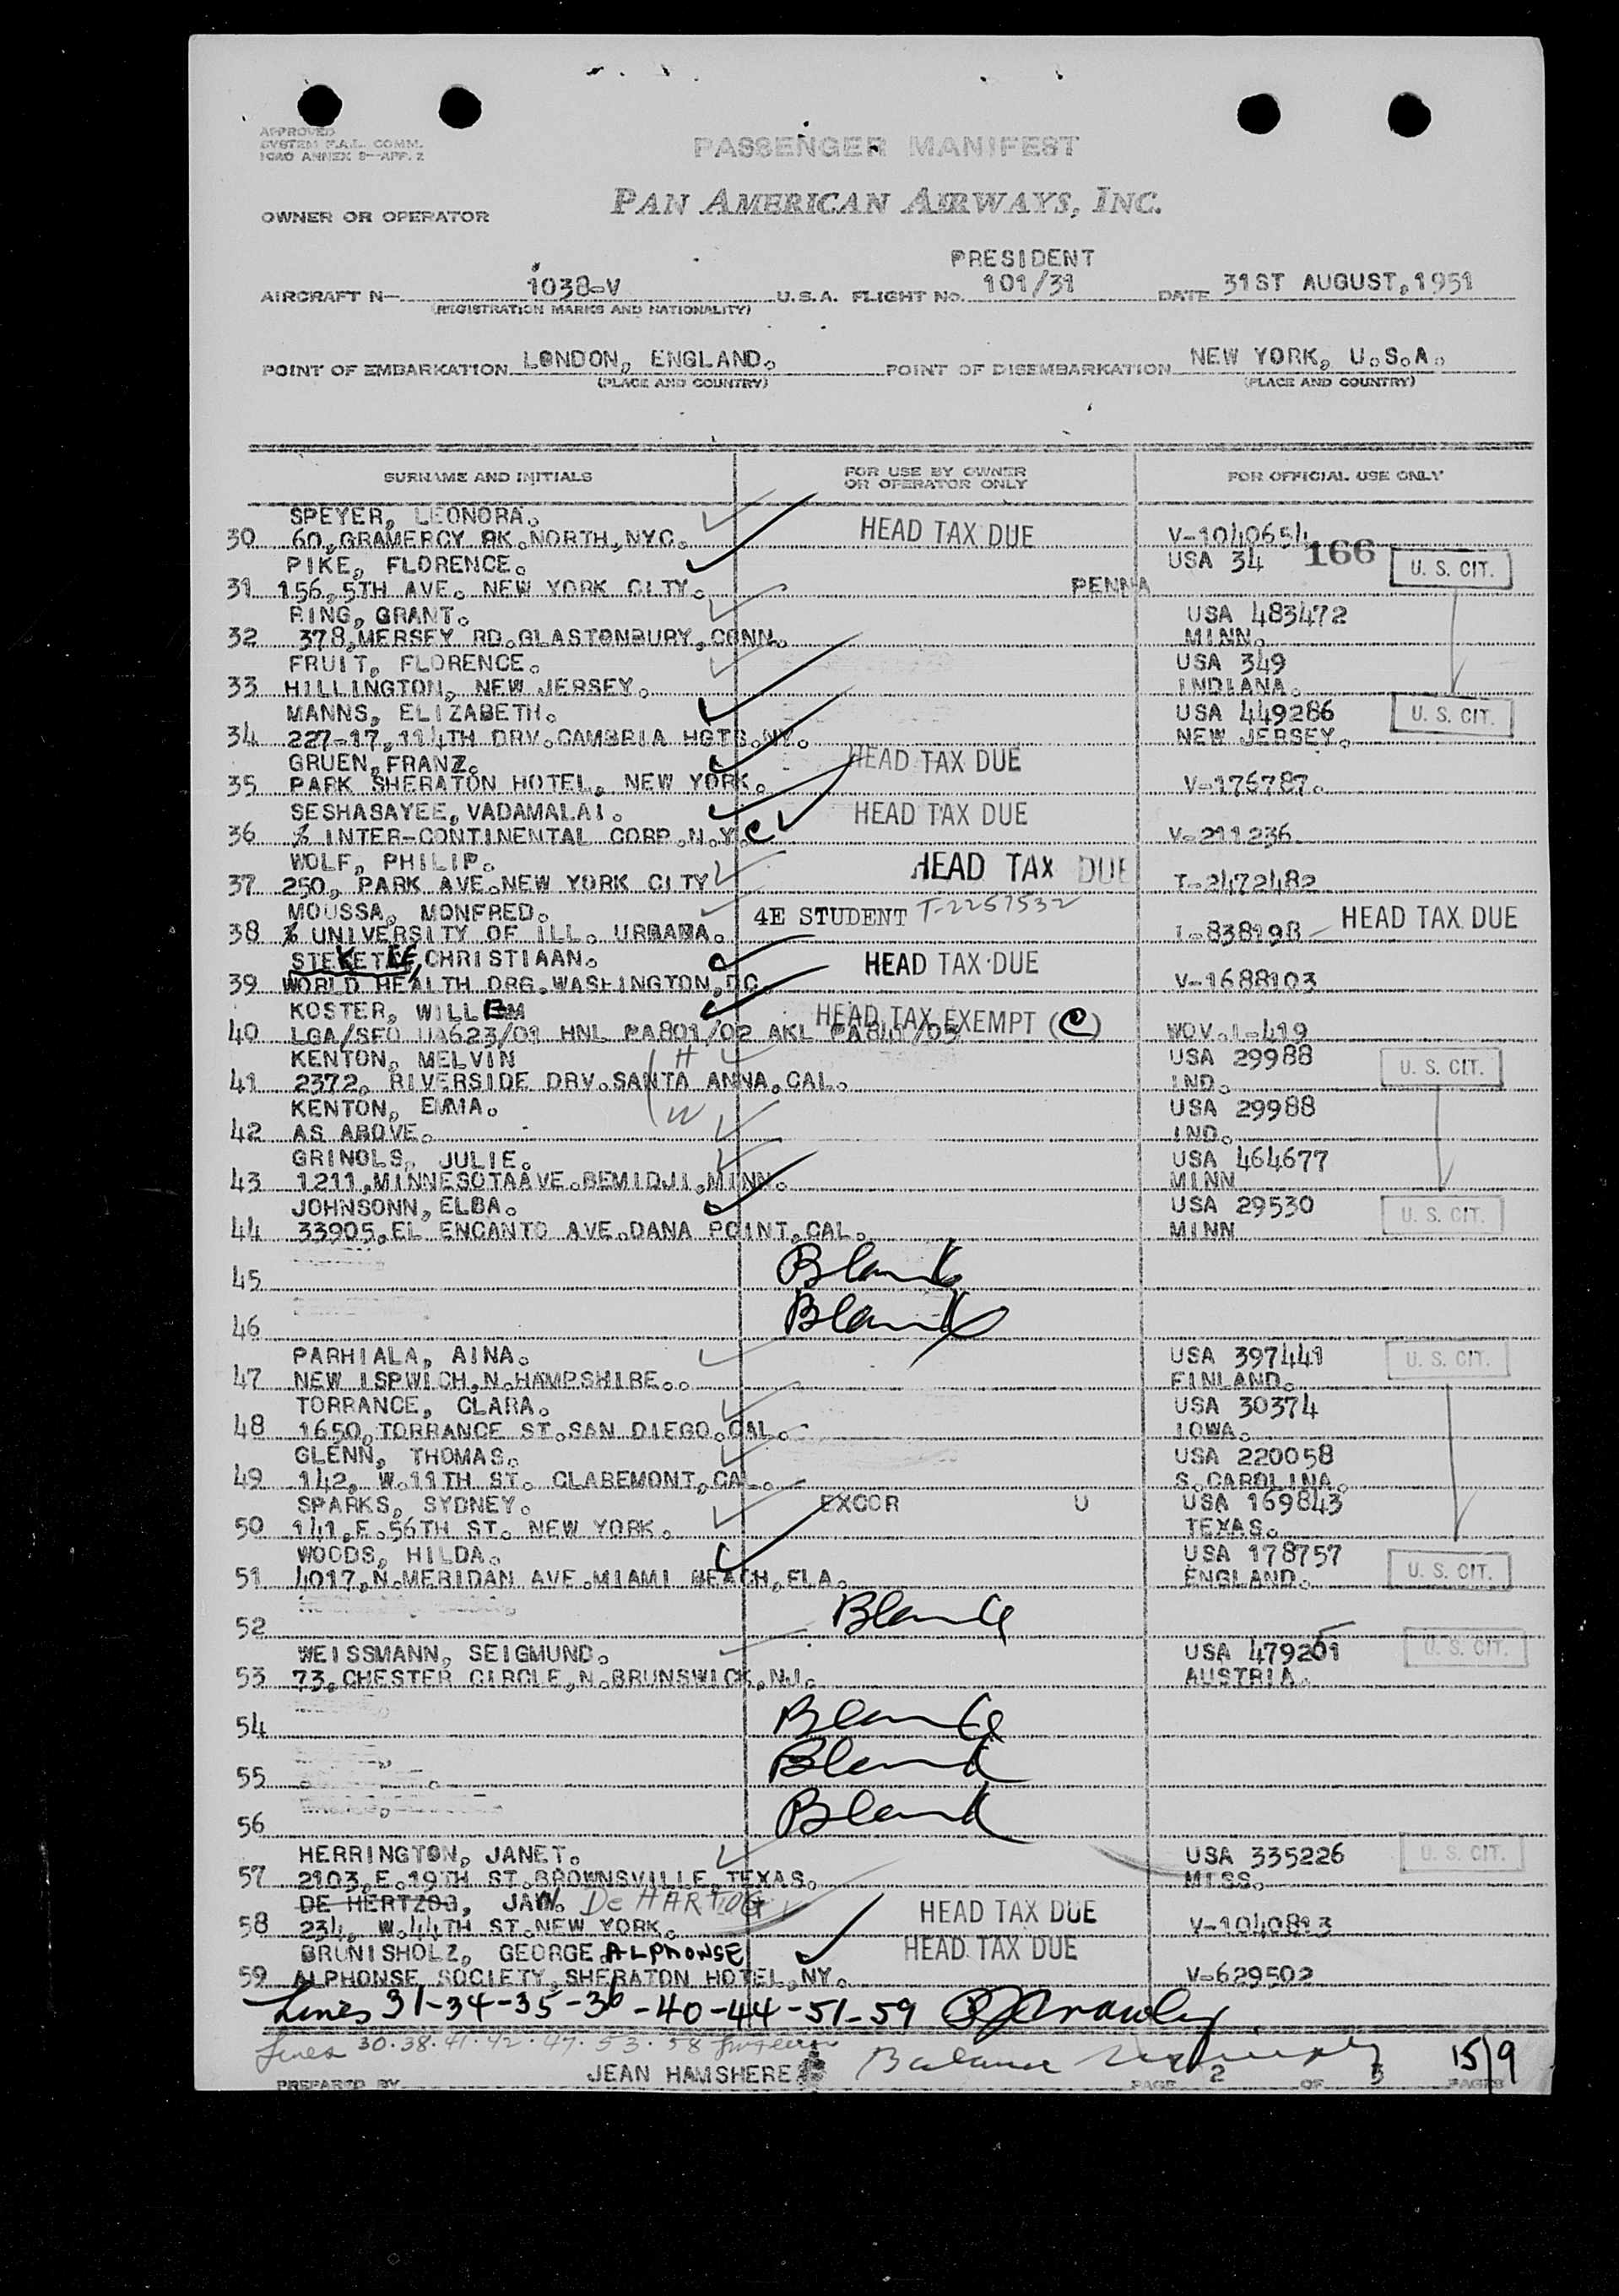 APPROVED
SYSTEM F.A.L. COMM.
ICAO ANNEX 9—APP. 2
PASSENGER MANIFEST
OWNER OR OPERATOR PAN AMERICAN AIRWAYS, INC.
PRESIDENT
AIRCRAFT N— 1038-V U.S.A. FLIGHT No. 101/31 DATE 31ST AUGUST, 1951
(REGISTRATION MARKS AND NATIONALITY)
POINT OF EMBARKATION LONDON, ENGLAND. POINT OF DISEMBARKATION NEW YORK, U.S.A.
(PLACE AND COUNTRY) (PLACE AND COUNTRY)
SURNAME AND INITIALS FOR USE BY OWNER OR OPERATOR ONLY FOR OFFICIAL USE ONLY
SPEYER, LEONORA. HEAD TAX DUE
30 60, GRAMERCY PK. NORTH, NYC. V-1040654
PIKE, FLORENCE. USA 34 166 U. S. CIT.
31 156, 5TH AVE. NEW YORK CITY. PENNA
RING, GRANT. USA 483472
32 378, MERSEY RD. GLASTONBURY, CONN. MINN.
FRUIT, FLORENCE. USA 349
33 HILLINGTON, NEW JERSEY. INDIANA.
MANNS, ELIZABETH. USA 449286 U. S. CIT.
34 227-17, 114TH DRV. CAMBRIA HGTS. NY. NEW JERSEY.
GRUEN, FRANZ. HEAD TAX DUE
35 PARK SHERATON HOTEL, NEW YORK. V-176787.
SESHASAYEE, VADAMALAI. HEAD TAX DUE
36 % INTER-CONTINENTAL CORP. N.Y.C V-211236
WOLF, PHILIP. HEAD TAX DUE
37 250, PARK AVE. NEW YORK CITY T-2472482
MOUSSA, MONFRED. 4E STUDENT T-2257532 HEAD TAX DUE
38 % UNIVERSITY OF ILL. URBANA. I-838198
STEKETEE, CHRISTIAAN. HEAD TAX DUE
39 WORLD HEALTH ORG. WASHINGTON, DC. V-1688103
KOSTER, WILLEM HEAD TAX EXEMPT (C)
40 LGA/SFO UA623/01 HNL PA801/02 AKL PA811/03 WOV.I-419
KENTON, MELVIN H USA 29988 U. S. CIT.
41 2372, RIVERSIDE DRV. SANTA ANNA, CAL. IND.
KENTON, EMMA. W USA 29988
42 AS ABOVE. IND.
GRINOLS, JULIE. USA 464677
43 1211, MINNESOTAAVE. BEMIDJI, MINN. MINN
JOHNSONN, ELBA. USA 29530 U. S. CIT.
44 33905, EL ENCANTO AVE. DANA POINT, CAL. MINN
45 Blank
46 Blank
PARHIALA, AINA. USA 397441 U. S. CIT.
47 NEW ISPWICH, N. HAMPSHIRE.. FINLAND.
TORRANCE, CLARA. USA 30374
48 1650, TORRANCE ST. SAN DIEGO. CAL. IOWA.
GLENN, THOMAS. USA 220058
49 142, W. 11TH ST. CLAREMONT, CAL. S. CAROLINA.
SPARKS, SYDNEY. EXCOR U USA 169843
50 141, E. 56TH ST. NEW YORK. TEXAS.
WOODS, HILDA. USA 178757
51 4017, N. MERIDAN AVE. MIAMI BEACH, FLA. ENGLAND. U. S. CIT.
52 Blank
WEISSMANN, SEIGMUND. USA 479201 U. S. CIT.
53 73, CHESTER CIRCLE, N. BRUNSWICK, NJ. AUSTRIA.
54 Blank
55 Blank
56 Blank
HERRINGTON, JANET. USA 335226 U. S. CIT.
57 2103, E. 19TH ST. BROWNSVILLE, TEXAS. MISS.
DE HERTZOG, JAN. De HARTOG HEAD TAX DUE
58 234, W. 44TH ST. NEW YORK. V-1040813
BRUNISHOLZ, GEORGE ALPHONSE HEAD TAX DUE
59 ALPHONSE SOCIETY, SHERATON HOTEL, NY. V-629502
Lines 31-34-35-36-40-44-51-59
Lines 30.38.41.42.47.53.58
Balance
PREPARED BY JEAN HAMSHERE PAGE 2 OF 3 PAGES 15/9